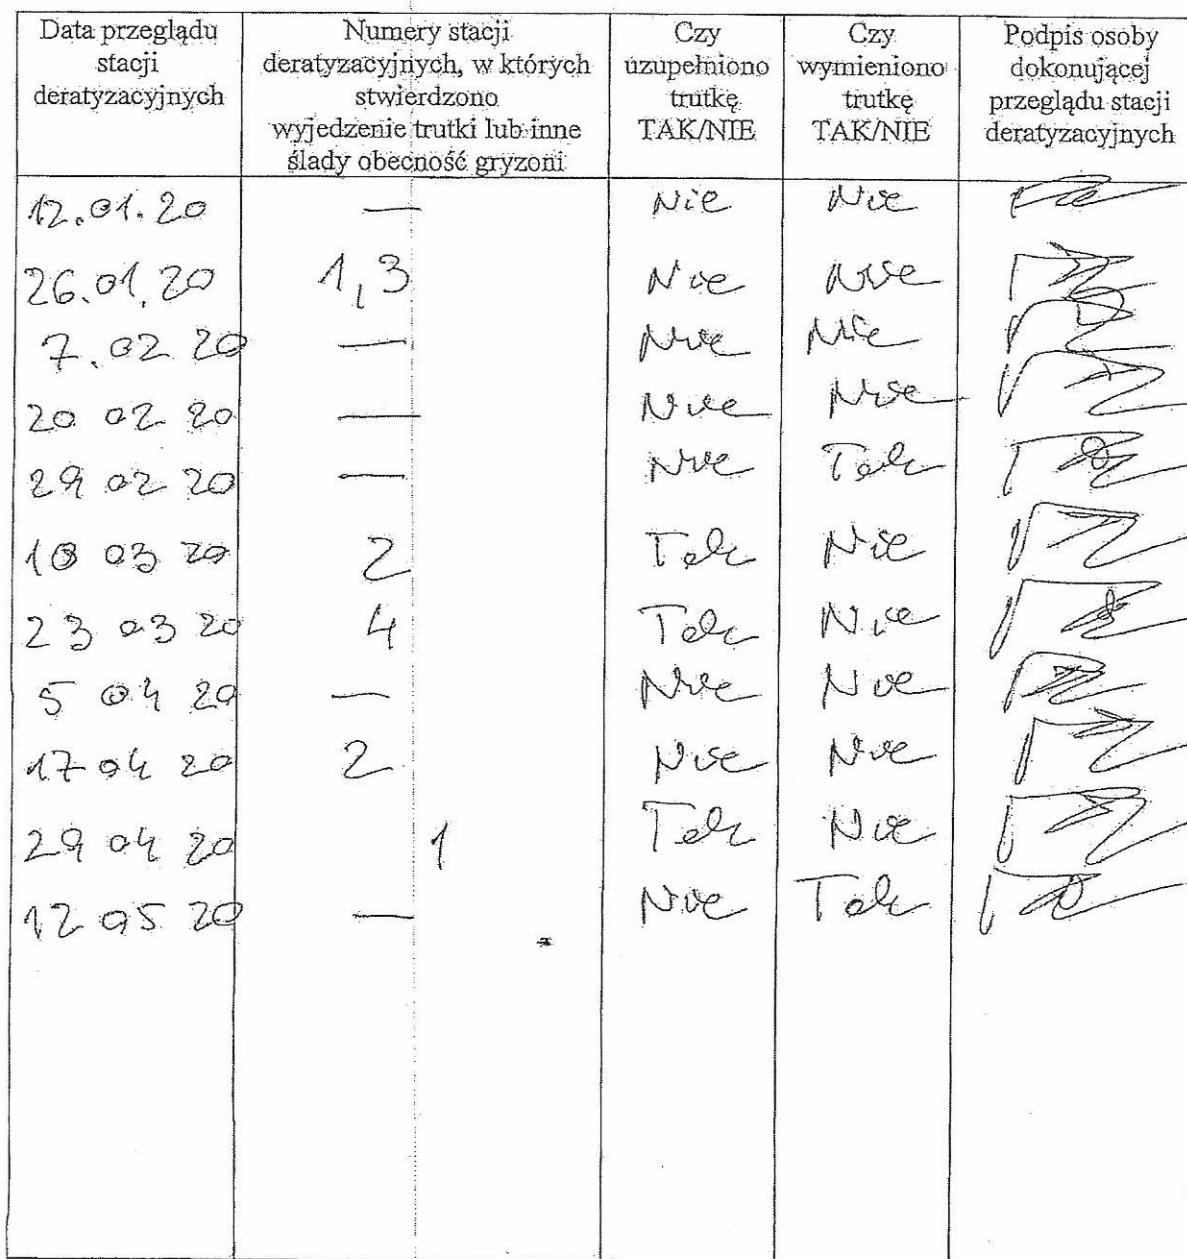 Data przeglądu stacji deratyzacyjnych | Numery stacji deratyzacyjnych, w których stwierdzono wyjedzenie trutki lub inne ślady obecność gryzoni | Czy uzupełniono trutkę TAK/NIE | Czy wymieniono trutkę TAK/NIE | Podpis osoby dokonującej przeglądu stacji deratyzacyjnych
12.01.20 | — | Nie | Nie
26.01.20 | 1,3 | Nie | Nie
7.02 20 | — | Nie | Nie
20 02 20 | — | Nie | Nie
29 02 20 | — | Nie | Tak
10 03 20 | 2 | Tak | Nie
23 03 20 | 4 | Tak | Nie
5 04 20 | — | Nie | Nie
17 04 20 | 2 | Nie | Nie
29 04 20 | 1 | Tak | Nie
12 05 20 | — | Nie | Tak